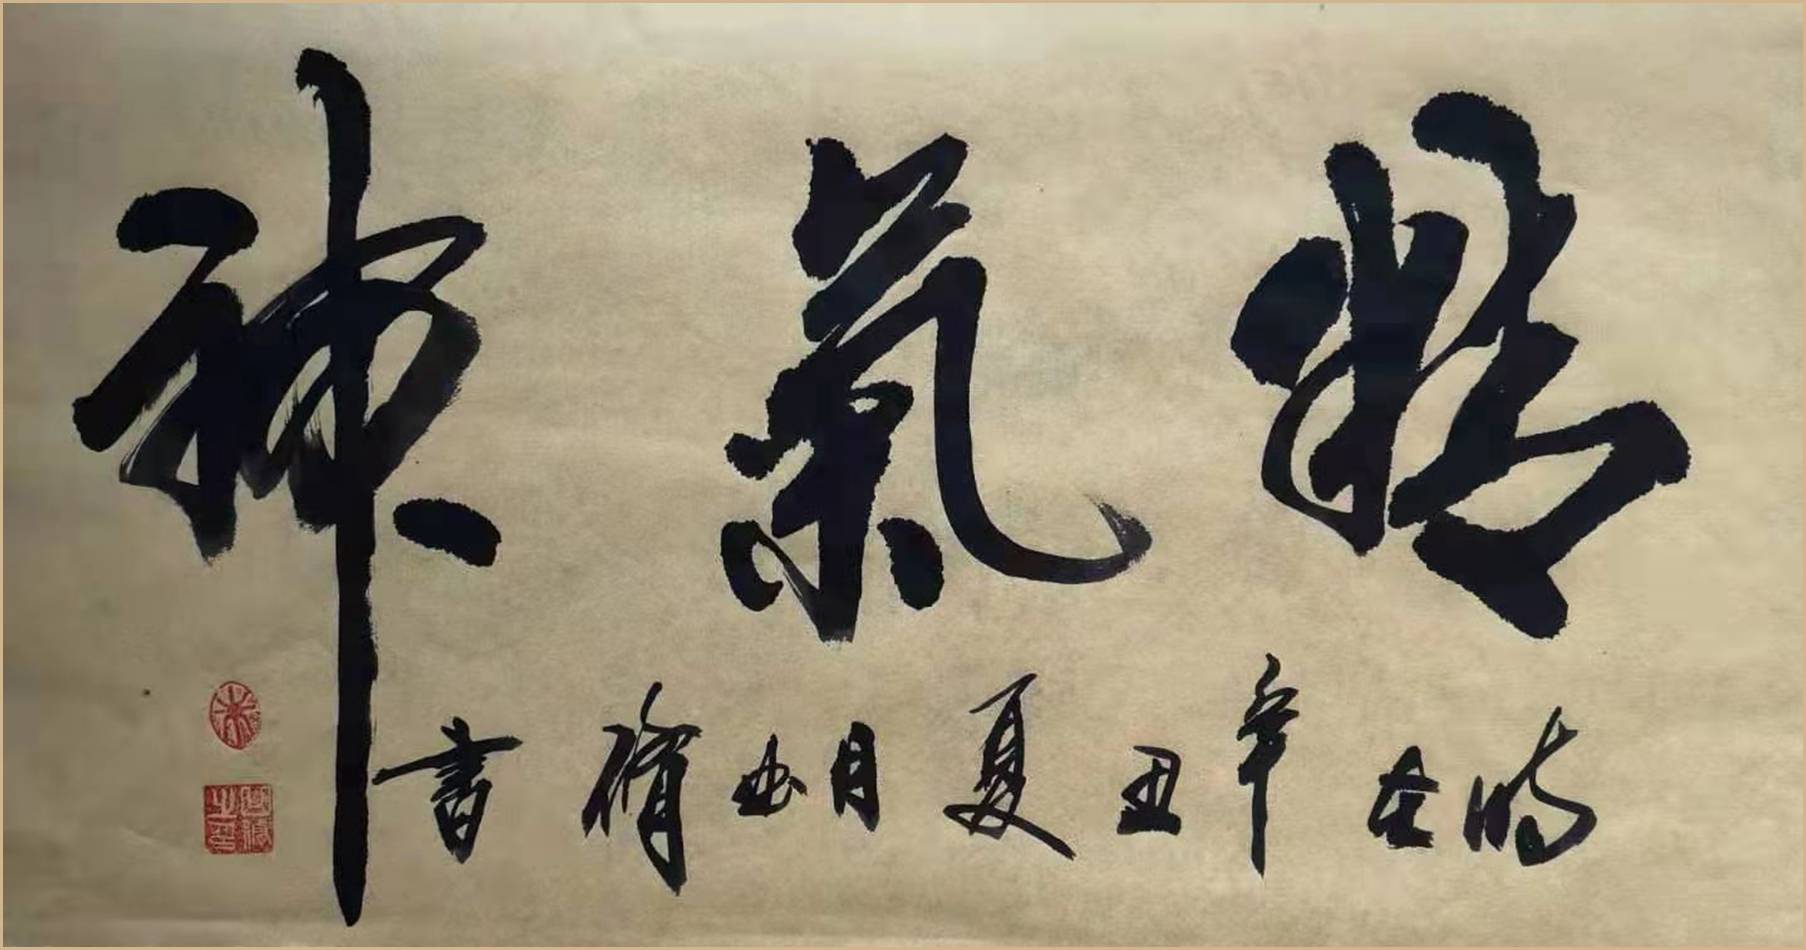 精氣神
時在辛丑夏月書